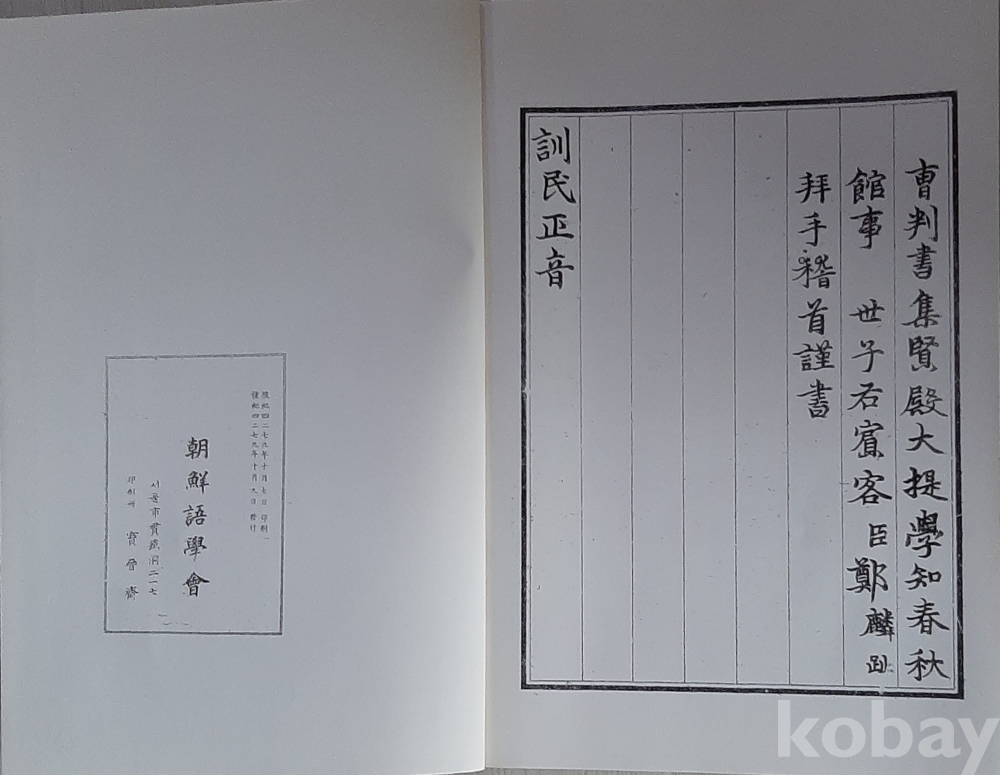 曹判書集賢殿大提學知春秋
館事 世子右賓客 臣 鄭麟趾
拜手稽首謹書
訓民正音
檀紀四二七九年十月七日 印刷
檀紀四二七九年十月九日 發行
朝鮮語學會
서울市貫鐵洞二一七
印刷所 寶晉齋
kobay